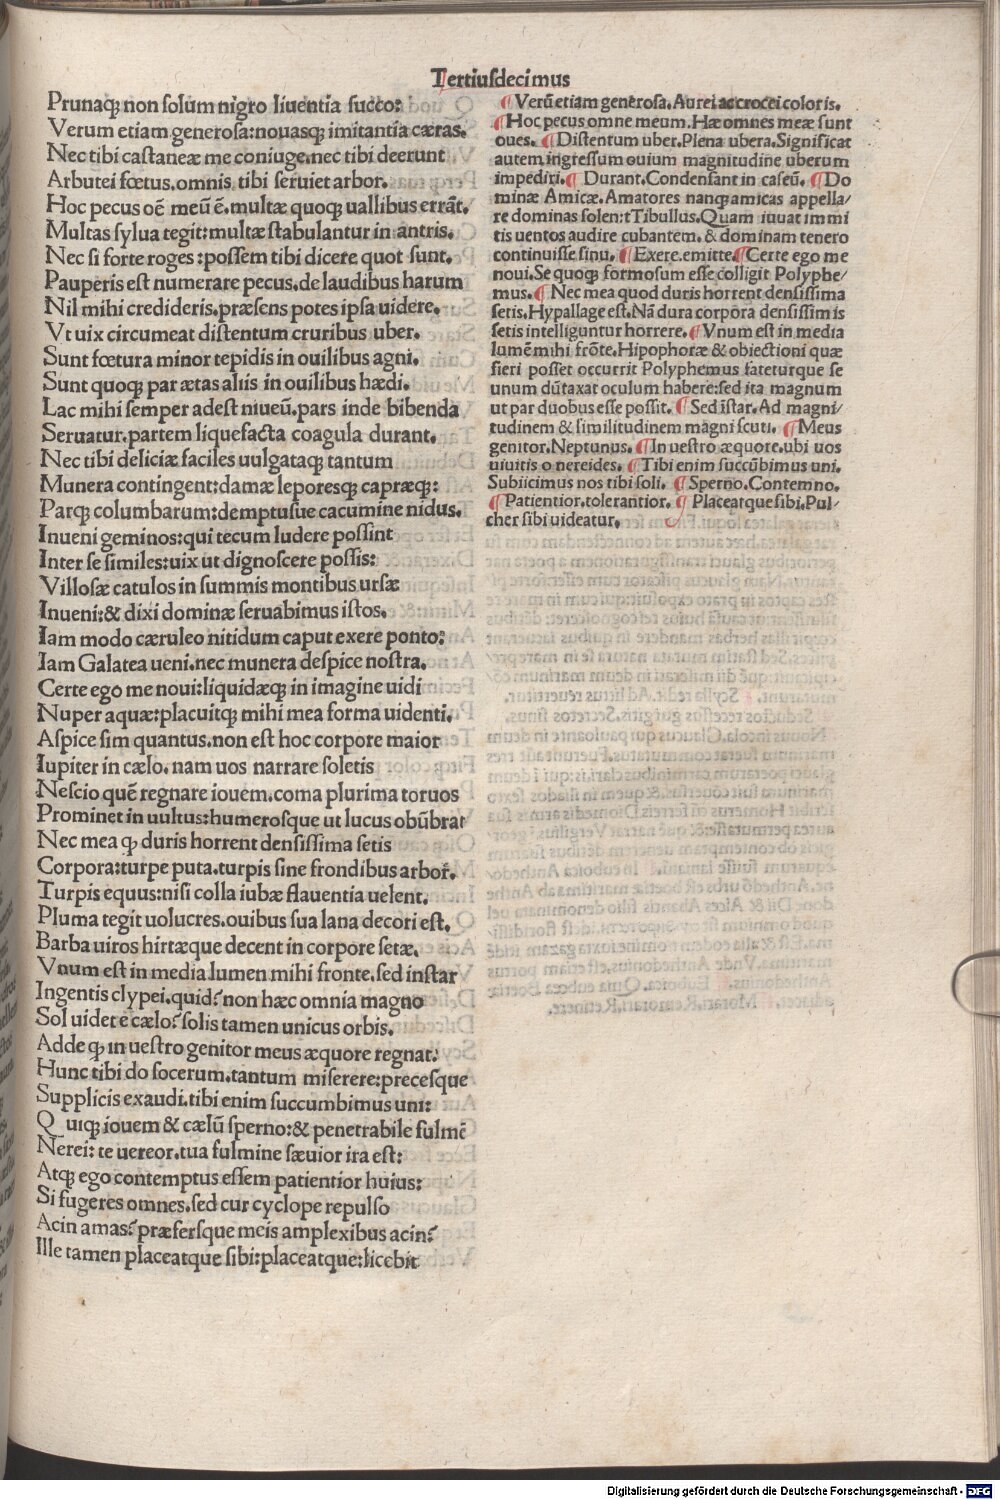 Tertiusdecimus
Prunaqꝫ non ſolum nigro liuentia ſucco:
Verum etiam generoſa: nouasqꝫ imitantia cæras.
Nec tibi caſtaneæ me coniuge. nec tibi deerunt
Arbutei fœtus. omnis tibi ſeruiet arbor.
Hoc pecus oē meū ē. multæ quoqꝫ uallibus errāt.
Multas ſylua tegit: multæ ſtabulantur in antris.
Nec ſi forte roges: poſſem tibi dicere quot ſunt.
Pauperis eſt numerare pecus. de laudibus harum
Nil mihi credideris. præſens potes ipſa uidere.
Vt uix circumeat diſtentum cruribus uber.
Sunt fœtura minor tepidis in ouilibus agni.
Sunt quoqꝫ par ætas aliis in ouilibus hædi.
Lac mihi ſemper adeſt niueū. pars inde bibenda
Seruatur. partem liquefacta coagula durant.
Nec tibi deliciæ faciles uulgataqꝫ tantum
Munera contingent: damæ leporesqꝫ capræqꝫ:
Parqꝫ columbarum: demptuſue cacumine nidus.
Inueni geminos: qui tecum ludere poſſint
Inter ſe ſimiles: uix ut dignoſcere poſſis:
Villoſæ catulos in ſummis montibus urſæ
Inueni: & dixi dominæ ſeruabimus iſtos.
Iam modo cæruleo nitidum caput exere ponto:
Iam Galatea ueni. nec munera deſpice noſtra.
Certe ego me noui: liquidæqꝫ in imagine uidi
Nuper aquæ: placuitqꝫ mihi mea forma uidenti.
Aſpice ſim quantus. non eſt hoc corpore maior
Iupiter in cælo. nam uos narrare ſoletis
Neſcio quē regnare iouem. coma plurima toruos
Prominet in uultus: humerosque ut lucus obūbrat
Nec mea qꝫ duris horrent denſiſſima ſetis
Corpora: turpe puta. turpis ſine frondibus arbor.
Turpis equus: niſi colla iubæ flauentia uelent.
Pluma tegit uolucres. ouibus ſua lana decori eſt.
Barba uiros hirtæque decent in corpore ſetæ.
Vnum eſt in media lumen mihi fronte. ſed inſtar
Ingentis clypei. quid? non hæc omnia magno
Sol uidet e cælo? ſolis tamen unicus orbis.
Adde qꝫ in ueſtro genitor meus æquore regnat:
Hunc tibi do ſocerum. tantum miſerere: precesque
Supplicis exaudi. tibi enim ſuccumbimus uni:
Quiqꝫ iouem & cælū ſperno: & penetrabile fulmē
Nerei: te uereor. tua fulmine ſæuior ira eſt:
Atqꝫ ego contemptus eſſem patientior huius:
Si fugeres omnes. ſed cur cyclope repulſo
Acin amas? præfersque meis amplexibus acin?
Ille tamen placeatque ſibi: placeatque: licebit
¶ Verū etiam generoſa. Aurei ac crocei coloris.
¶ Hoc pecus omne meum. Hæ omnes meæ ſunt
oues. ¶ Diſtentum uber. Plena ubera. Significat
autem ingreſſum ouium magnitudine uberum
impediri. ¶ Durant. Condenſant in caſeū. ¶ Do
minæ Amicæ. Amatores nanqꝫ amicas appella/
re dominas ſolent Tibullus. Quam iuuat immi
tis uentos audire cubantem. & dominam tenero
continuiſſe ſinu. ¶ Exere. emitte. ¶ Certe ego me
noui. Se quoqꝫ formoſum eſſe colligit Polyphe/
mus. ¶ Nec mea quod duris horrent denſiſſima
ſetis. Hypallage eſt. Nā dura corpora denſiſſimis
ſetis intelliguntur horrere. ¶ Vnum eſt in media
lumē mihi frōte. Hipophoræ & obiectioni quæ
fieri poſſet occurrit Polyphemus fateturque ſe
unum dūtaxat oculum habere: ſed ita magnum
ut par duobus eſſe poſſit. ¶ Sed īſtar. Ad magni/
tudinem & ſimilitudinem magni ſcuti. ¶ Meus
genitor. Neptunus. ¶ In ueſtro æquore. ubi uos
uiuitis o nereides. ¶ Tibi enim ſuccūbimus uni.
Subiicimus nos tibi ſoli. ¶ Sperno. Contemno.
¶ Patientior. tolerantior. ¶ Placeatque ſibi. Pul/
cher ſibi uideatur.
Digitalisierung gefördert durch die Deutsche Forschungsgemeinschaft - DFG